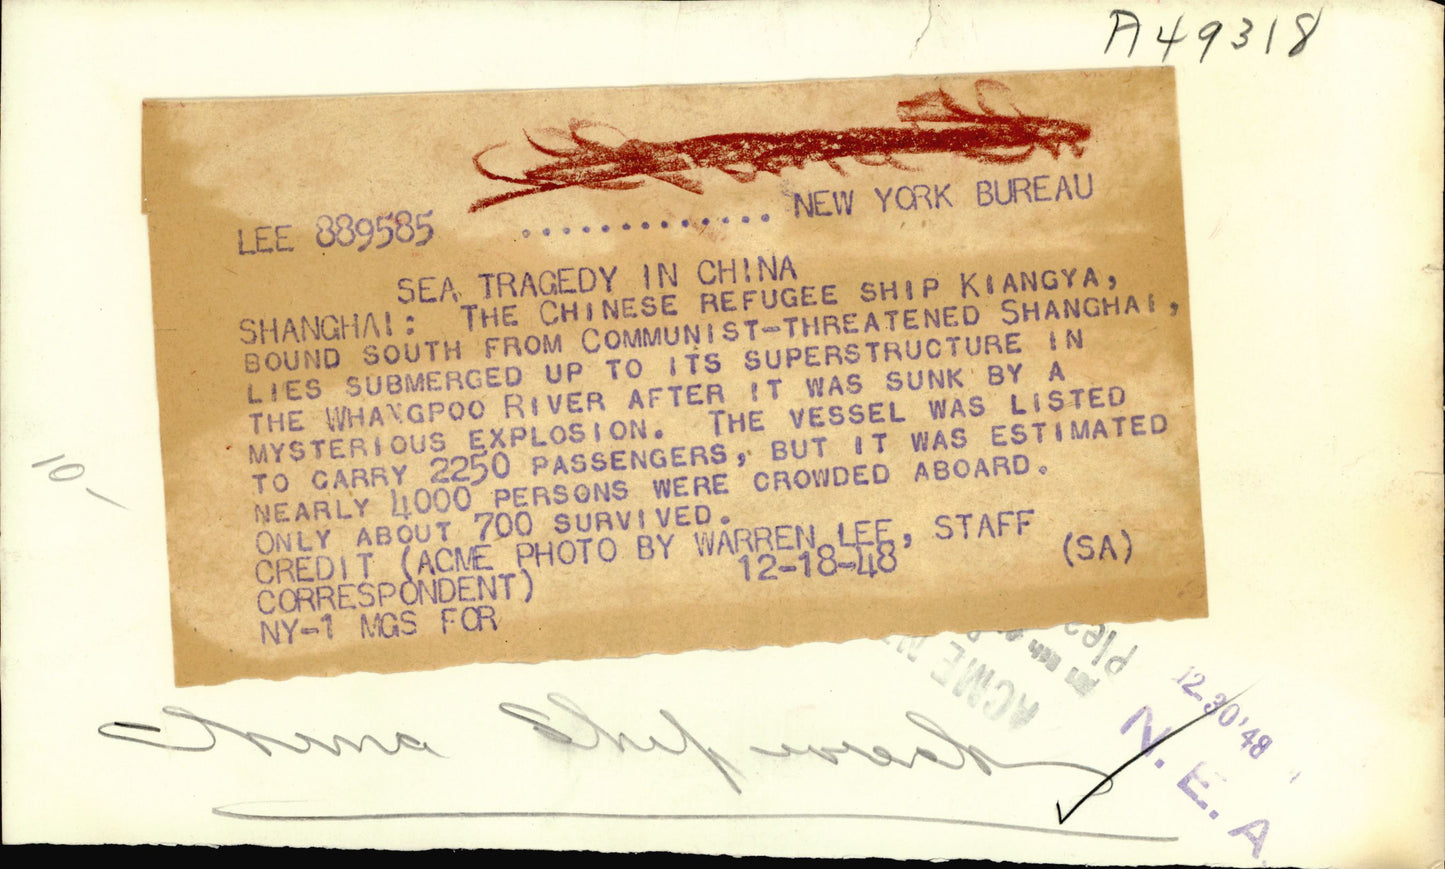 A49318
LEE 889585 ............. NEW YORK BUREAU
SEA TRAGEDY IN CHINA
SHANGHAI: THE CHINESE REFUGEE SHIP KIANGYA,
BOUND SOUTH FROM COMMUNIST-THREATENED SHANGHAI,
LIES SUBMERGED UP TO ITS SUPERSTRUCTURE IN
THE WHANGPOO RIVER AFTER IT WAS SUNK BY A
MYSTERIOUS EXPLOSION. THE VESSEL WAS LISTED
TO CARRY 2250 PASSENGERS, BUT IT WAS ESTIMATED
NEARLY 4000 PERSONS WERE CROWDED ABOARD.
ONLY ABOUT 700 SURVIVED.
CREDIT (ACME PHOTO BY WARREN LEE, STAFF
CORRESPONDENT) 12-18-48 (SA)
NY-1 MGS FOR
10-
ACME
Plea
12-30'48
N. E. A.
China Shipwreck